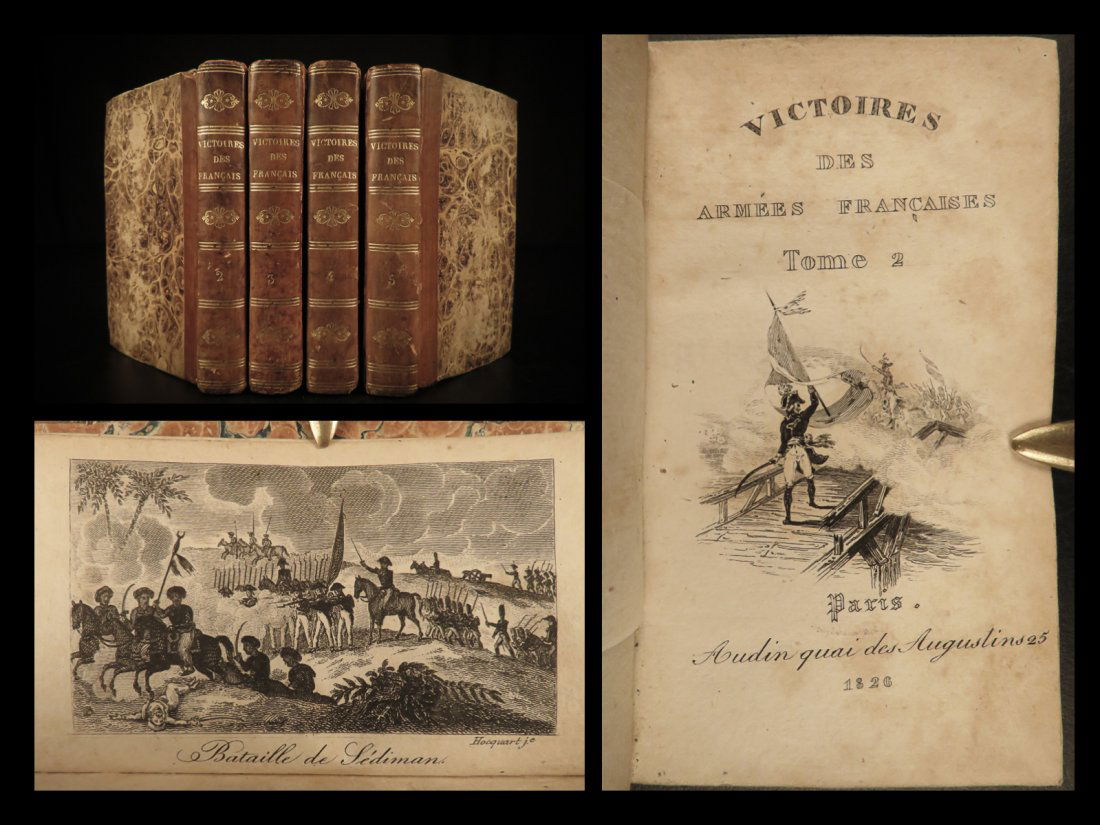 VICTOIRES
DES
FRANÇAIS
2
VICTOIRES
DES
FRANÇAIS
3
VICTOIRES
DES
FRANÇAIS
4
VICTOIRES
DES
FRANÇAIS
5
Hocquart je
Bataille de Sédiman.
VICTOIRES
DES
ARMÉES FRANÇAISES
Tome 2
Paris.
Audin quai des Augustins 25
1826